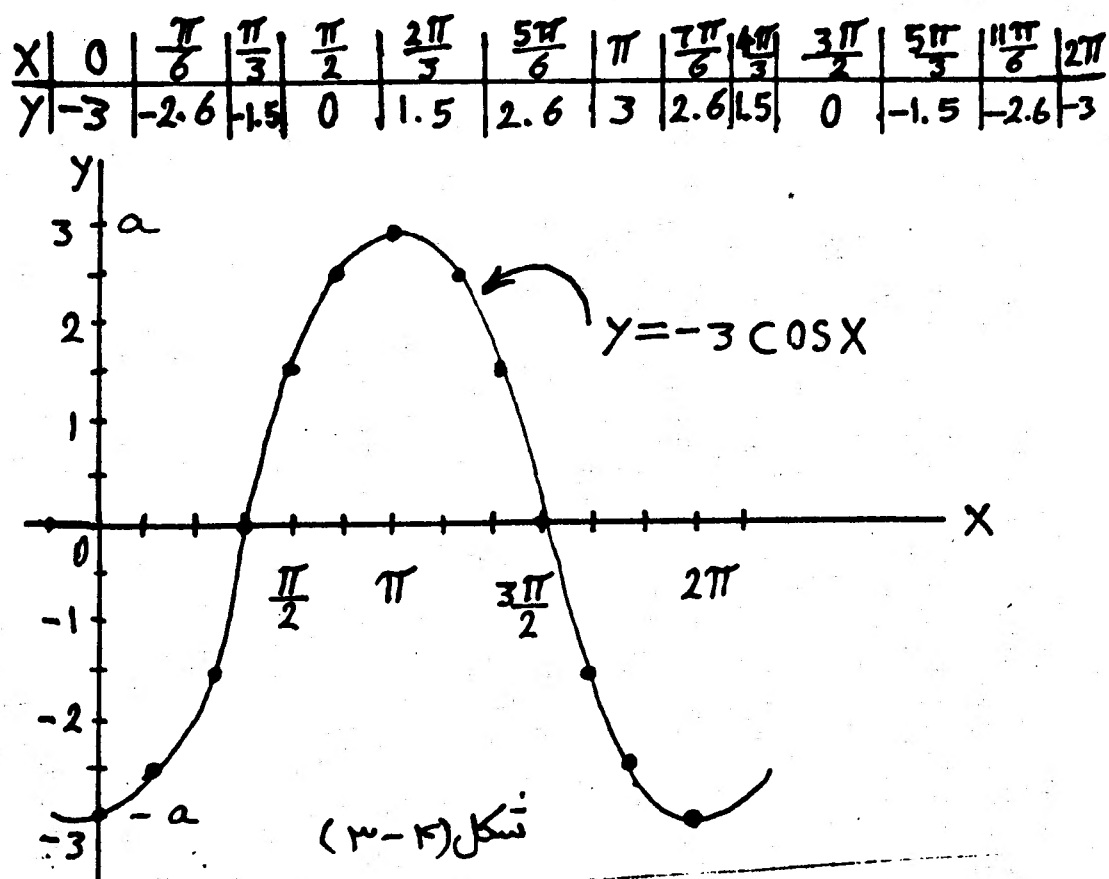 X | 0 | π/6 | π/3 | π/2 | 2π/3 | 5π/6 | π | 7π/6 | 4π/3 | 3π/2 | 5π/3 | 11π/6 | 2π
Y | -3 | -2.6 | -1.5 | 0 | 1.5 | 2.6 | 3 | 2.6 | 1.5 | 0 | -1.5 | -2.6 | -3
Y
3 a
2
Y=-3 COSX
1
X
0
π/2 π 3π/2 2π
-1
-2
-3 -a
شکل (۳-۴)